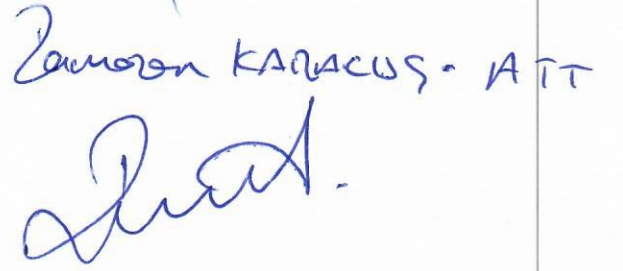 Ramazan KARAKUŞ - ATT